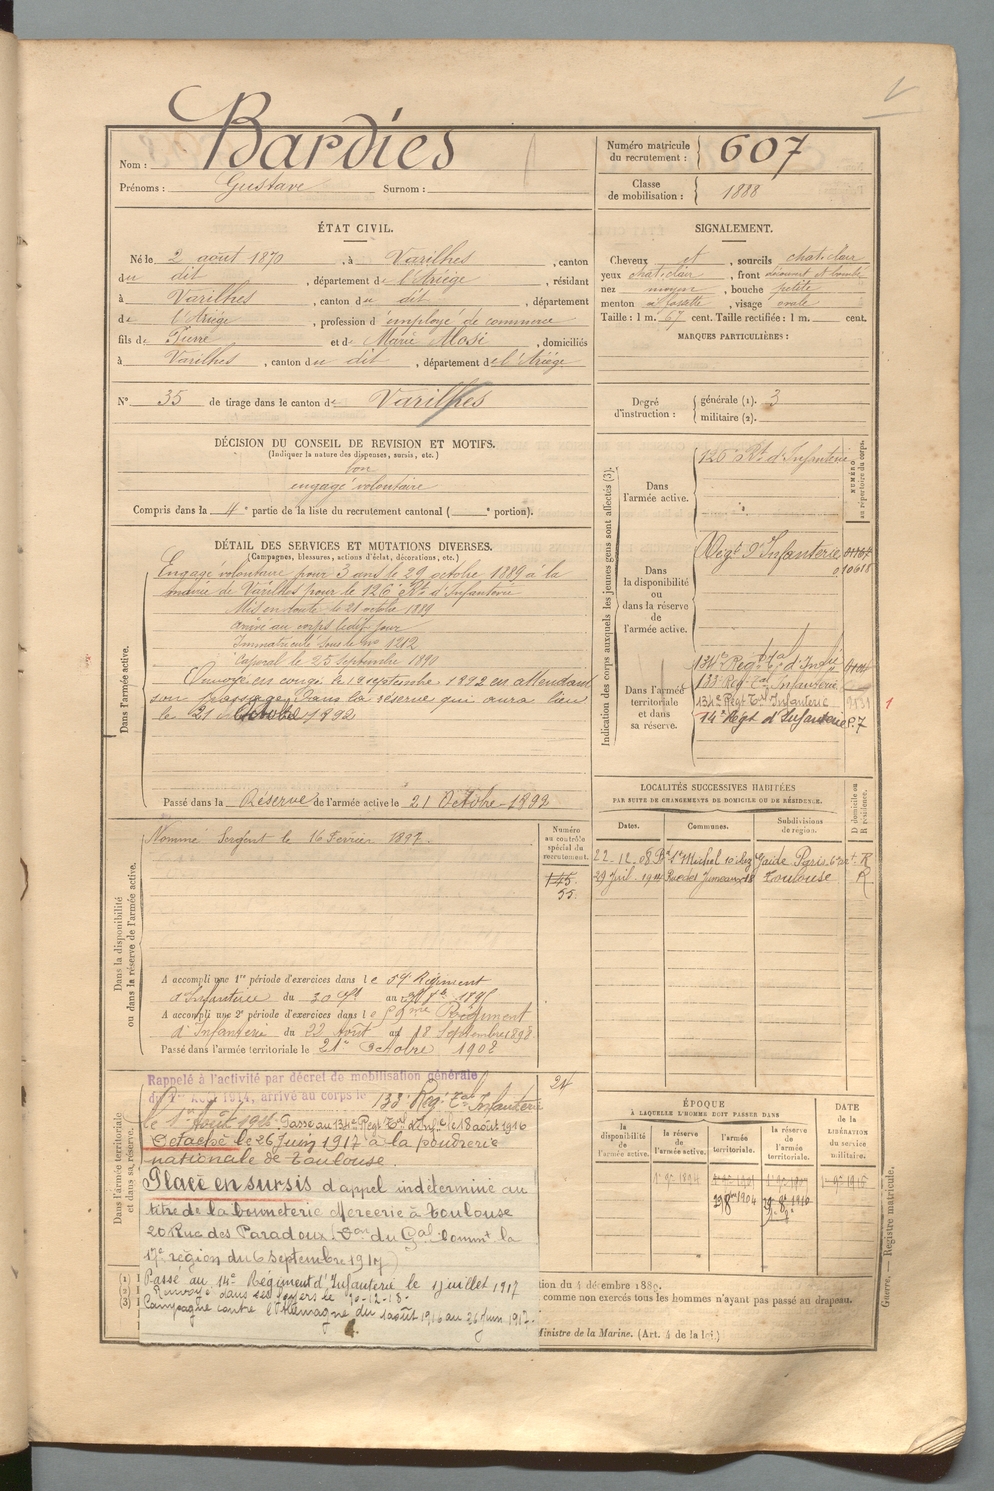 Nom : Bardies
Prénoms : Gustave Surnom :
Numéro matricule du recrutement : 607
Classe de mobilisation : 1888
ÉTAT CIVIL.
Né le 2 août 1870, à Varilhes, canton
du dit, département de l'Ariège, résidant
à Varilhes, canton du dit, département
de l'Ariège, profession d'employé de commerce
fils de et de Marie, domiciliés
à Varilhes, canton du dit, département de l'Ariège
N° 35 de tirage dans le canton de Varilhes
SIGNALEMENT.
Cheveux et, sourcils chat. clair
yeux chat. clair, front découvert et bombé
nez moyen, bouche petite
menton à fossette, visage ovale
Taille : 1 m. 67 cent. Taille rectifiée : 1 m. cent.
MARQUES PARTICULIÈRES :
Degré d'instruction : générale (1). 3
militaire (2).
DÉCISION DU CONSEIL DE REVISION ET MOTIFS.
(Indiquer la nature des dispenses, sursis, etc.)
bon
engagé volontaire
Compris dans la 4e partie de la liste du recrutement cantonal ( e portion).
DÉTAIL DES SERVICES ET MUTATIONS DIVERSES.
(Campagnes, blessures, actions d'éclat, décorations, etc.)
Dans l'armée active.
Engagé volontaire pour 3 ans le 29 octobre 1889 à la
mairie de Varilhes pour le 126e Rt d'Infanterie
Mis en route le 21 octobre 1889
Arrivé au corps ledit jour
Immatriculé sous le no 1212
Caporal le 25 septembre 1890
Envoyé en congé le 19 septembre 1892 en attendant
son passage dans la réserve qui aura lieu
le 21 Octobre 1892
Passé dans la Réserve de l'armée active le 21 Octobre 1892
Indication des corps auxquels les jeunes gens sont affectés (3).
NUMÉRO au répertoire du corps.
Dans l'armée active.
126e Rt d'Infanterie
Dans la disponibilité ou dans la réserve de l'armée active.
Régt d'Infanterie
010618
Dans l'armée territoriale et dans sa réserve.
134e Régt d'Inf
133 Reg. Tal Infanterie
134e Régt Tal Infanterie
14e Régt d'Infanterie P.7
1
LOCALITÉS SUCCESSIVES HABITÉES
PAR SUITE DE CHANGEMENTS DE DOMICILE OU DE RÉSIDENCE.
Dates. Communes. Subdivisions de région. D domicile ou R résidence.
22-12-08 Bd St Michel 10 chez R
29 Juil. Rue des 18 Toulouse R
Dans la disponibilité ou dans la réserve de l'armée active.
Nommé Sergent le 16 Février 1892.
Numéro au contrôle spécial du recrutement.
145
55
A accompli une 1re période d'exercices dans le 59e Régiment
d'Infanterie du 30 au 1895
A accompli une 2e période d'exercices dans le 59me Régiment
d'Infanterie du 22 Août au 18 Septembre 1898
Passé dans l'armée territoriale le 21 Octobre 1902
Dans l'armée territoriale et dans sa réserve.
Rappelé à l'activité par décret de mobilisation générale
du 1er Août 1914, arrivé au corps le 133e Reg. Tal Infanterie
24
le 1er Août 1916 Passé au 134e Régt Tal d'Inf. le 18 août 1916
Détaché le 26 Juin 1917 à la poudrerie
nationale de Toulouse.
Placé en sursis d'appel indéterminé au
titre de la bonneterie Mercerie à Toulouse
20 Rue des Paradoux (Don du Gal Commt la
17e région du 6 septembre 1917)
Passé au 14e Régiment d'Infanterie le 1 juillet 1917
Renvoyé dans ses foyers le 10-12-18.
Campagne contre l'Allemagne du 1 août 1916 au 26 Juin 1917.
ÉPOQUE
À LAQUELLE L'HOMME DOIT PASSER DANS
la disponibilité de l'armée active. la réserve de l'armée active. l'armée territoriale. la réserve de l'armée territoriale.
DATE de la LIBÉRATION du service militaire.
(1)
(2)
(3)
tion du 4 décembre 1889.
comme non exercés tous les hommes n'ayant pas passé au drapeau.
Ministre de la Marine. (Art. 4 de la loi.)
Guerre. — Registre matricule.